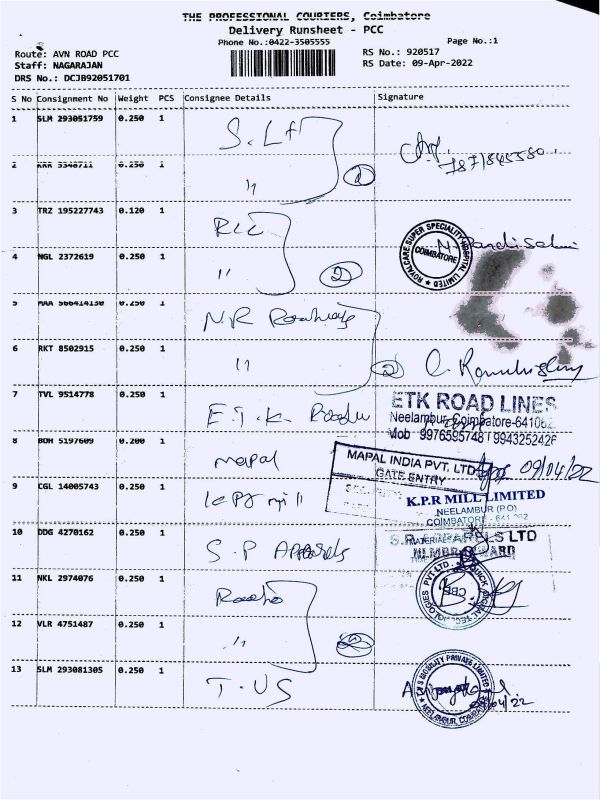 THE PROFESSIONAL COURIERS, Coimbatore
Delivery Runsheet - PCC
Phone No.:0422-3505555
Page No.:1
Route: AVN ROAD PCC
RS No.: 920517
Staff: NAGARAJAN
RS Date: 09-Apr-2022
DRS No.: DCJB92051701
S No Consignment No Weight PCS Consignee Details Signature
1 SLM 293051759 0.250 1
2 KRR 5548711 0.250 1 "
3 TRZ 195227743 0.120 1
ROYALCARE SUPER SPECIALITY HOSPITAL LIMITED
COIMBATORE
4 NGL 2372619 0.250 1 " 2
5 MAA 566414130 0.250 1 N.R Roadways
6 RKT 8502915 0.250 1 " 2
7 TVL 9514778 0.250 1 E T. K. Roadli
ETK ROAD LINES
Neelambur, Coimbatore-641062.
Mob 9976595748 / 9943252426
8 BOM 5197609 0.200 1 mapal
MAPAL INDIA PVT. LTD
GATE ENTRY
09/04/22
9 CGL 14005743 0.250 1 KPR mill
K.P.R MILL LIMITED
NEELAMBUR (P.O)
COIMBATORE - 641 062
10 DDG 4270162 0.250 1 S.P Apparels
11 NKL 2974076 0.250 1
12 VLR 4751487 0.250 1 "
13 SLM 293081305 0.250 1 T.VS
MOBILITY PRIVATE LIMITED
NEELAMBUR, COIMBATORE
09/04/22